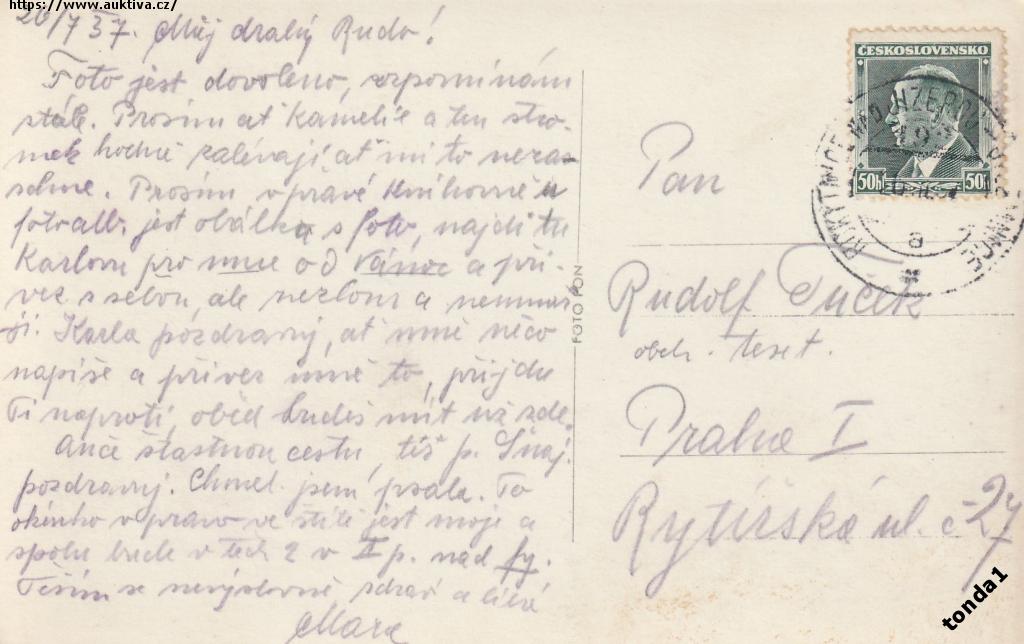 https://www.auktiva.cz/
26/7 37. Můj drahý Rudo!
Foto jest dovoleno, vzpomínám
stále. Prosím ať Kamelie a ten stro-
mek hodně zalévají ať mi to neza-
schne. Prosím v pravé knihovně u
fotoalb. jest obálka s foto, najdi tu
Karlovu pro mne od Vánoc a při-
vez s sebou, ale nezlom a
Karla pozdravuj, ať mně něco
napíše a přivez mně to, přijdu
Ti naproti, oběd budeš mít už zde.
Anče šťastnou cestu, též p. Šnaj.
pozdravuj. Chmel. jsem psala. To
okénko v pravo ve štítě jest moje a
spolu bude v těch 2 v II p. nad fy.
Těším se nevýslovně, zdraví a líbá
Mara
ČESKOSLOVENSKO
50h 50h
a
FOTO FON
Pan
Rudolf Tuček
obch.
Praha I
Rytířská ul. č 27
tonda1